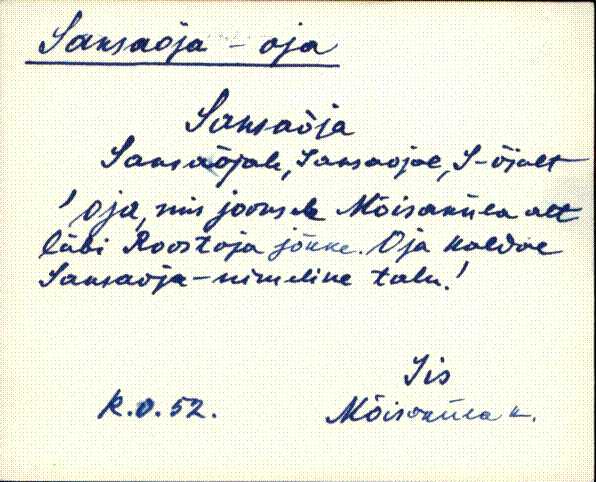 Sansaõja - oja
Sansaõja
Sansaõjale, Sansaõjal, S-õjalt
'oja, mis jookseb Mõisaküla alt
läbi Roostoja jõkke. Oja kaldal
Sansaõja-nimeline talu.'
Iis
R.O.52. Mõisaküla k.